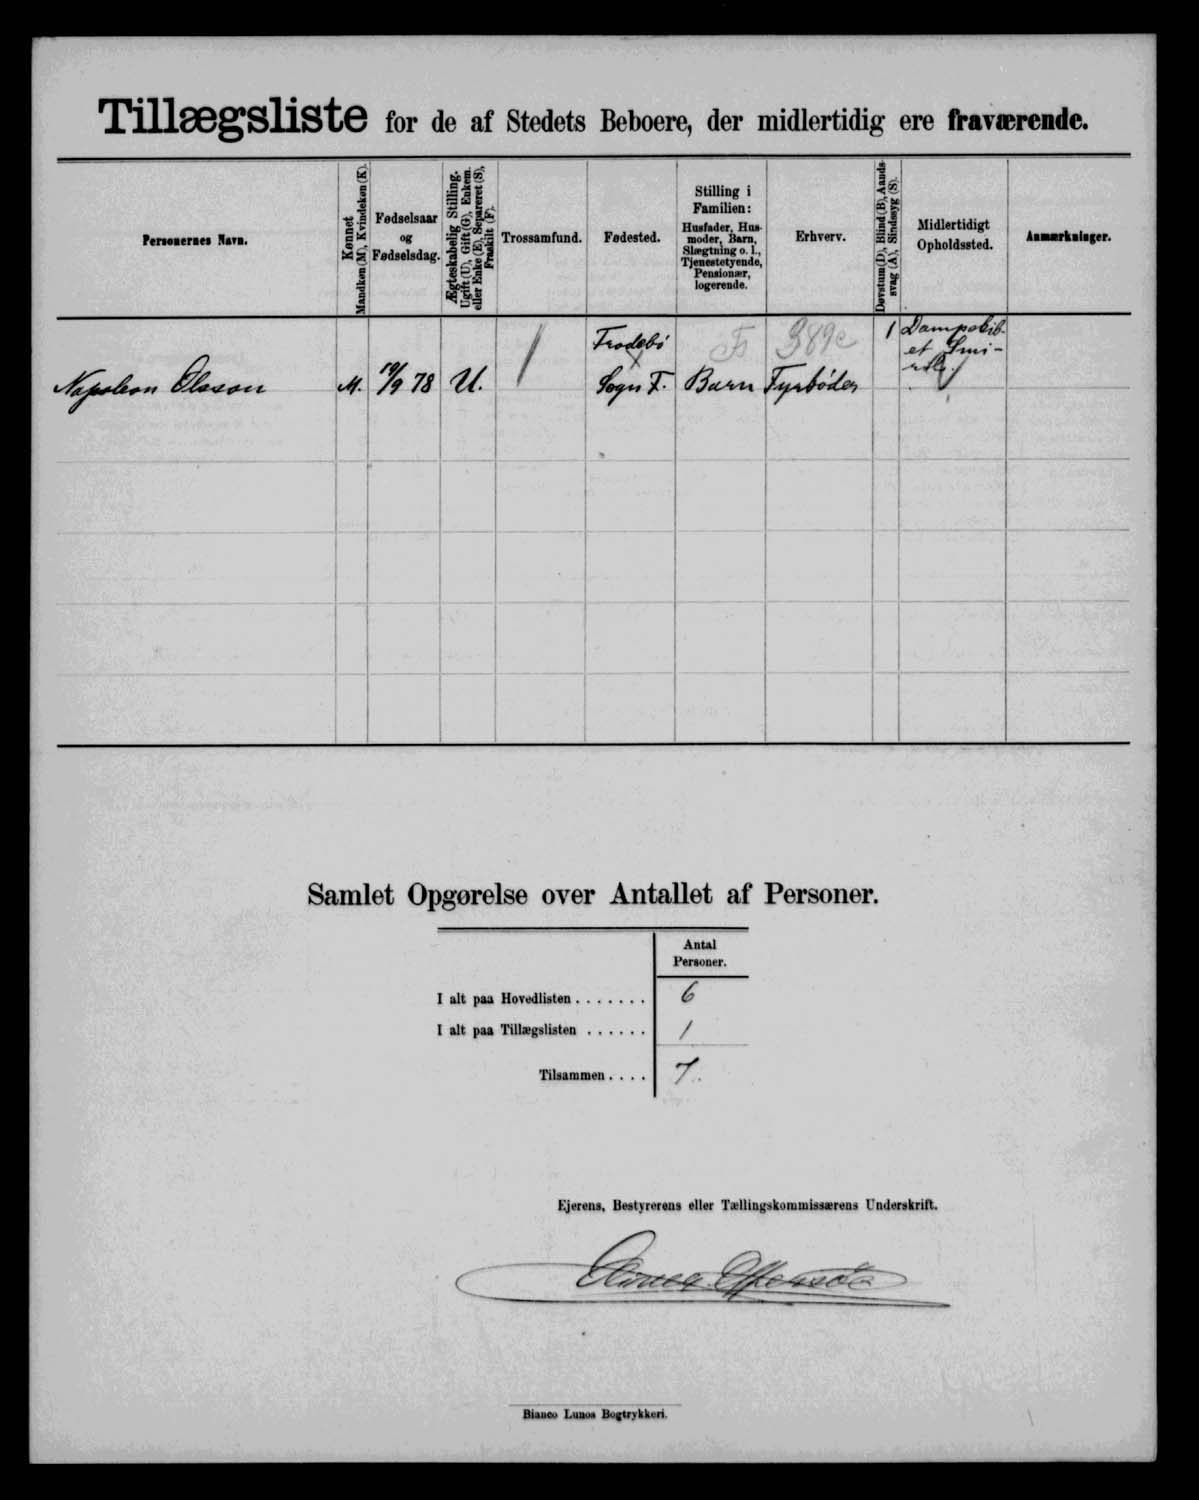 Tillægsliste for de af Stedets Beboere, der midlertidig ere fraværende.
Personernes Navn.
Kønnet
Mandkøn (M), Kvindekøn (K).
Fødselsaar
og
Fødselsdag.
Ægteskabelig Stilling.
Ugift (U), Gift (G), Enkem.
eller Enke (E), Separeret (S),
Fraskilt (F).
Trossamfund.
Fødested.
Stilling i
Familien:
Husfader, Hus-
moder, Barn,
Slægtning o. l.,
Tjenestetyende,
Pensionær,
logerende.
Erhverv.
Døvstum (D), Blind (B), Aands-
svag (A), Sindssyg (S).
Midlertidigt
Opholdssted.
Anmærkninger.
Napoleon Olsson M. 19/9 78 U.
Frodebø
Sogn F.
Barn Fyrbøder
389c
1
Dampskib-
et Smi-
ril.
Samlet Opgørelse over Antallet af Personer.
Antal
Personer.
I alt paa Hovedlisten ....... 6
I alt paa Tillægslisten ...... 1
Tilsammen .... 7.
Ejerens, Bestyrerens eller Tællingskommissærens Underskrift.
Bianco Lunos Bogtrykkeri.